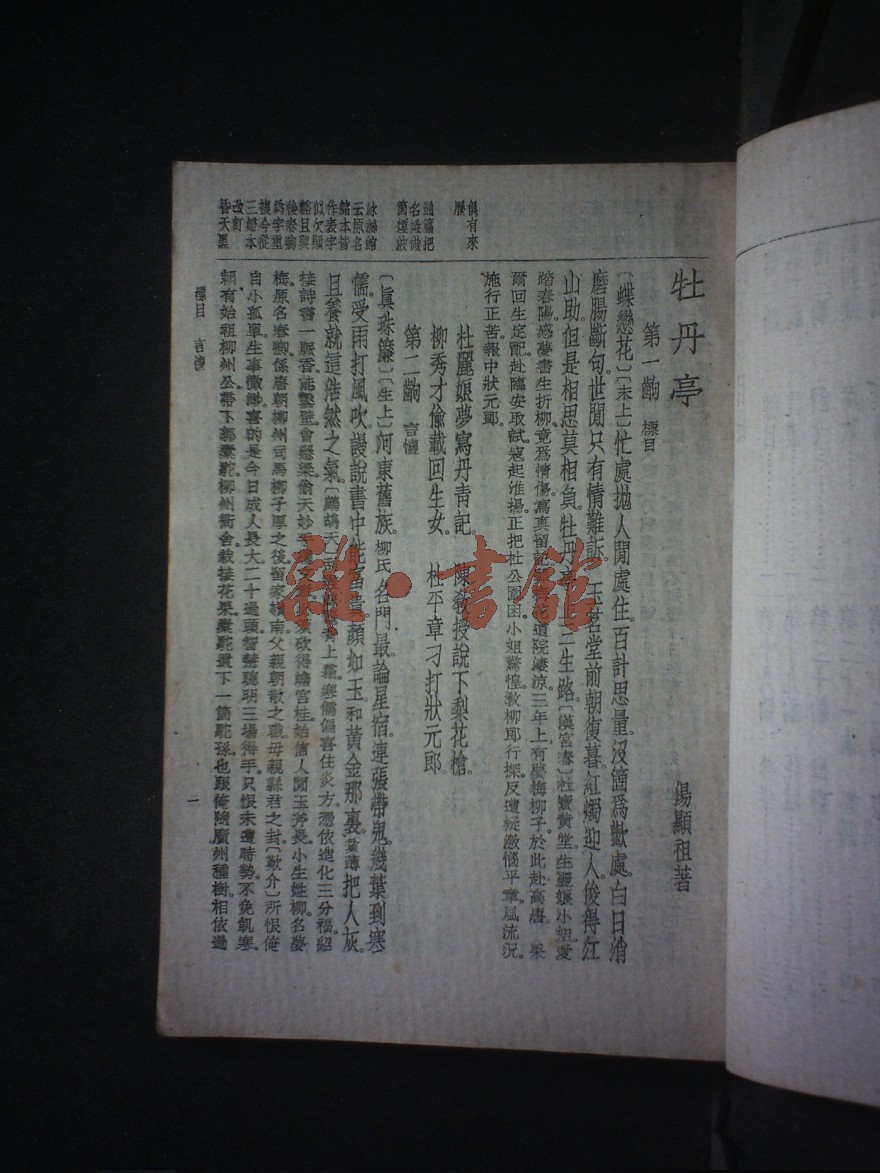 牡丹亭
湯顯祖著
第一齣 標目
〔蝶戀花〕〔末上〕忙處拋人閒處住。百計思量。沒箇爲歡處。白日消
磨腸斷句。世間只有情難訴。玉茗堂前朝復暮。紅燭迎人俊得江
山助。但是相思莫相負。牡丹亭上三生路。〔漢宮春〕杜寶黃堂生麗娘小姐愛
踏春陽。感夢書生折柳。竟爲情傷。寫眞留記 道院淒涼。三年上。有夢梅柳子。於此赴高唐。 果
爾回生定配。赴臨安取試。寇起淮揚。正把杜公圍困。小姐驚惶。敎柳郎行探。反遭疑激惱平章。風流況。
施行正苦。報中狀元郎。
杜麗娘夢寫丹青記。 陳敎授說下梨花槍。
柳秀才偸載回生女。 杜平章刁打狀元郎。
第二齣 言懷
〔眞珠簾〕〔生上〕河東舊族。柳氏名門最。論星宿。連張帶鬼。幾葉到寒
儒。受雨打風吹。謾說書中能富貴。顏如玉。和黃金那裏。貧薄把人灰。
且養就這浩然之氣。〔鷓鴣天〕 上霜。寒儒偏喜住炎方。憑依造化三分福。紹
接詩書一脈香。能鑿壁。會懸梁。偸天妙手 砍得蟾宮桂。始信人間玉斧長。小生姓柳。名夢
梅。原名春卿。係唐朝柳州司馬柳子厚之後。留家嶺南。父親朝散之職。母親縣君之封。〔歎介〕所恨俺
自小孤單。生事微渺。喜的是今日成人長大。二十過頭。智慧聰明。三場得手。只恨未遭時勢。不免飢寒。
賴有始祖柳州公。帶下郭橐駝。柳州衙舍。栽接花果。橐駝遺下一箇駝孫。也跟俺隨廣州種樹。相依過
俱有來
歷
通篇把
名姓做
箇煙波
云原名
作表字
三婦本
改訂
標目 言懷
一
雜·書館